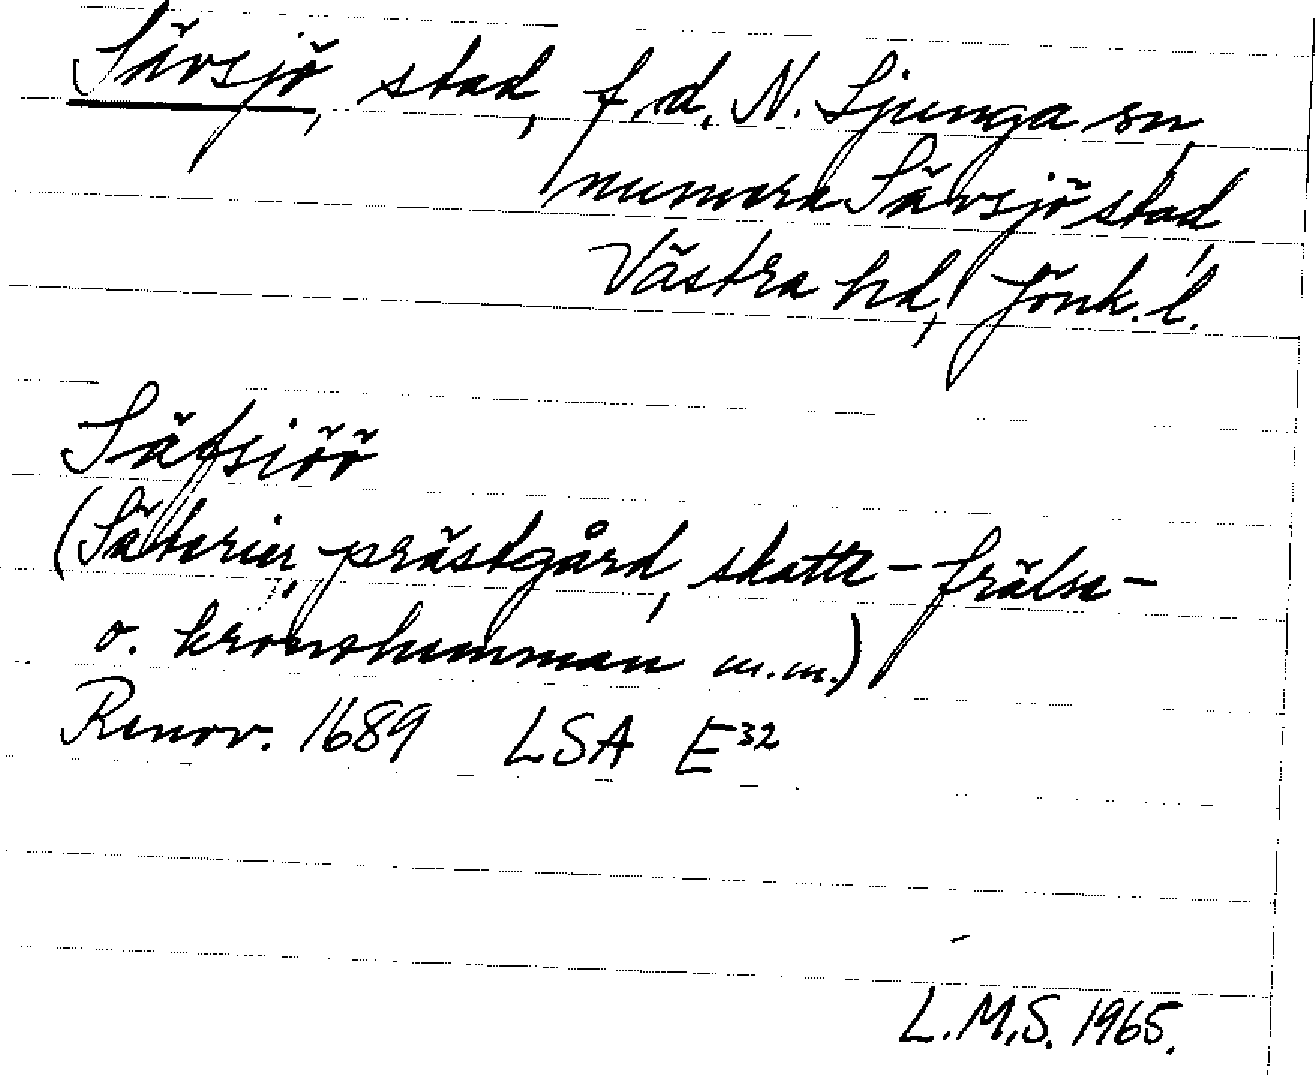 Sävsjö, stad, f.d. N. Ljunga sn,
numera Sävsjö stad,
Västra hd, Jönk. l.
Säfsiöö
(Säterier, prästgård, skatte- frälse-
o. kronohemman m.m.)
Renov. 1689 LSA E32
L.M.S. 1965.